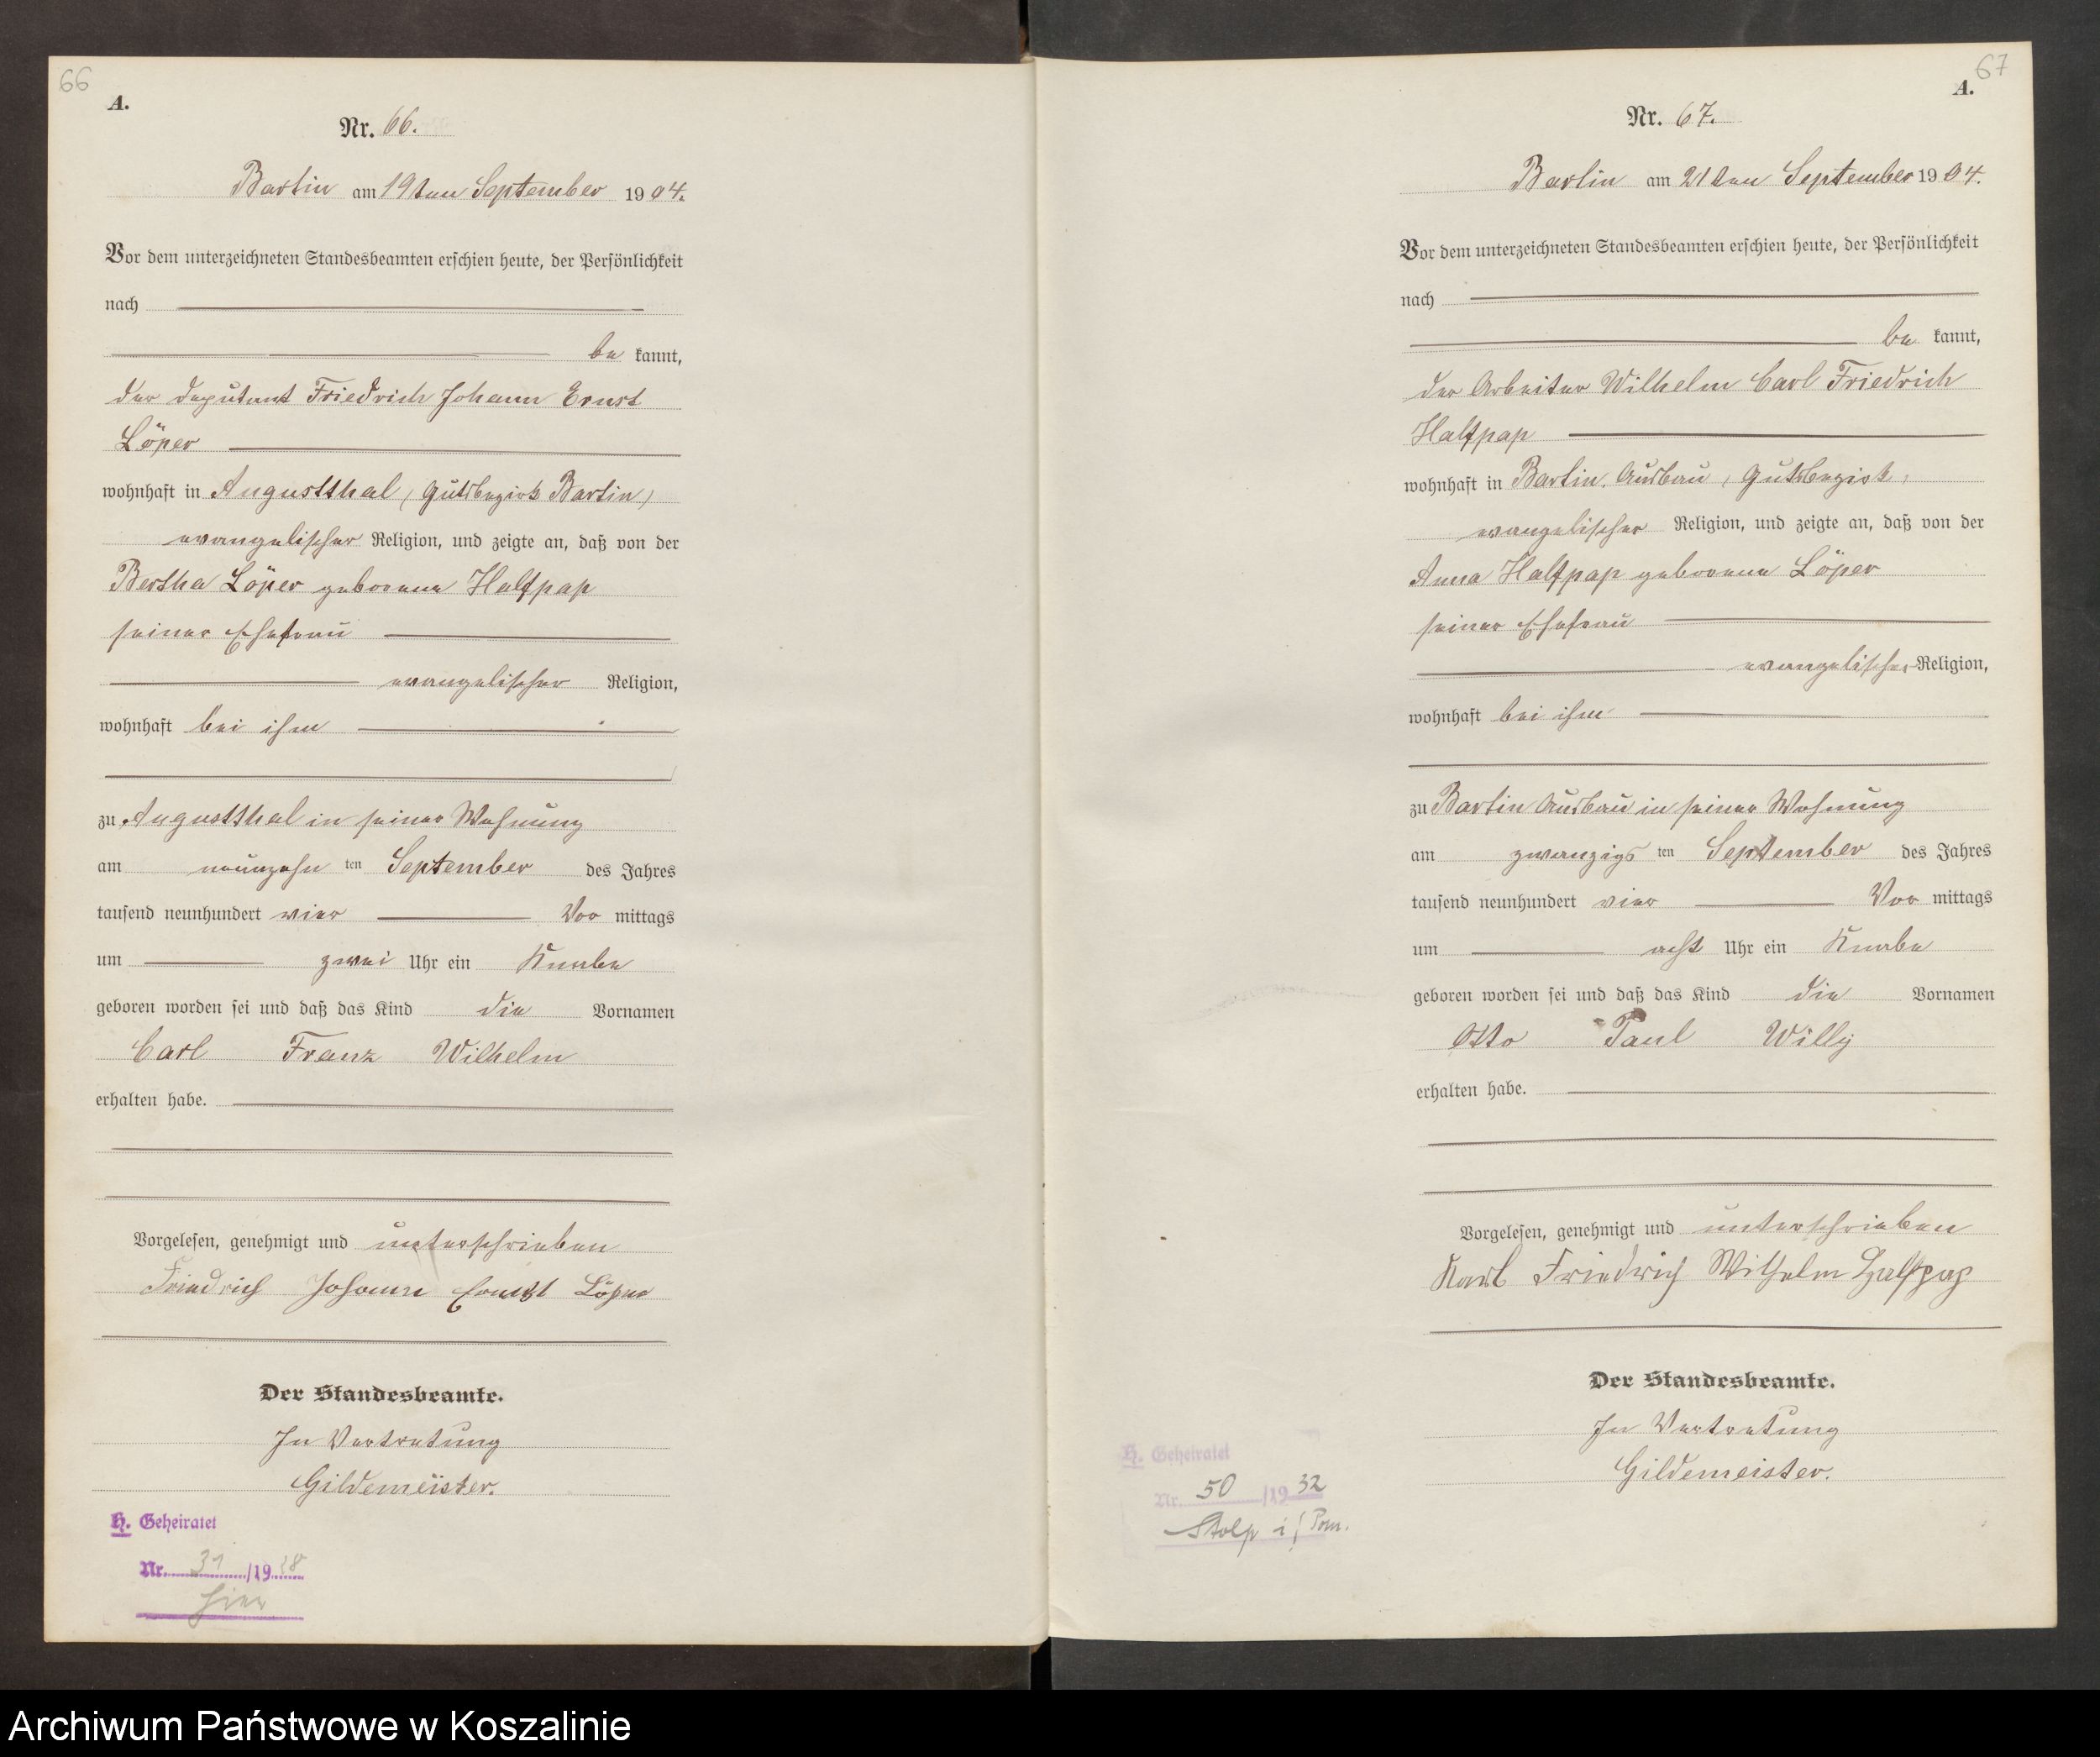 66
A.
Nr. 66.
Bartin am 19ten September 1904.
Vor dem unterzeichneten Standesbeamten erschien heute, der Persönlichkeit
nach
be kannt,
der Deputant Friedrich Johann Ernst
Löper
wohnhaft in Augustthal (Gutsbezirk Bartin)
evangelischer Religion, und zeigte an, daß von der
Bertha Löper geborene Halfpap
seiner Ehefrau
evangelischer Religion,
wohnhaft bei ihm
zu Augustthal in seiner Wohnung
am neunzehn ten September des Jahres
tausend neunhundert vier Vor mittags
um zwei Uhr ein Knabe
geboren worden sei und daß das Kind die Vornamen
Carl Franz Wilhelm
erhalten habe.
Vorgelesen, genehmigt und unterschrieben
Friedrich Johann Ernst Löper
Der Standesbeamte.
In Vertretung
Gildemeister.
H. Geheiratet
Nr. 31 /19
hier
67
A.
Nr. 67.
Bartin am 21ten September 1904.
Vor dem unterzeichneten Standesbeamten erschien heute, der Persönlichkeit
nach
be kannt,
der Arbeiter Wilhelm Carl Friedrich
Halfpap
wohnhaft in Bartin Ausbau, Gutsbezirk,
evangelischer Religion, und zeigte an, daß von der
Anna Halfpap geborene Löper
seiner Ehefrau
evangelischer Religion,
wohnhaft bei ihm
zu Bartin Ausbau in seiner Wohnung
am zwanzigs ten September des Jahres
tausend neunhundert vier Vor mittags
um acht Uhr ein Knabe
geboren worden sei und daß das Kind die Vornamen
Otto Paul Willy
erhalten habe.
Vorgelesen, genehmigt und unterschrieben
Karl Friedrich Wilhelm Halfpap
Der Standesbeamte.
In Vertretung
Gildemeister.
H. Geheiratet
Nr. 50 /1932
Stolp i/Pom.
Archiwum Państwowe w Koszalinie